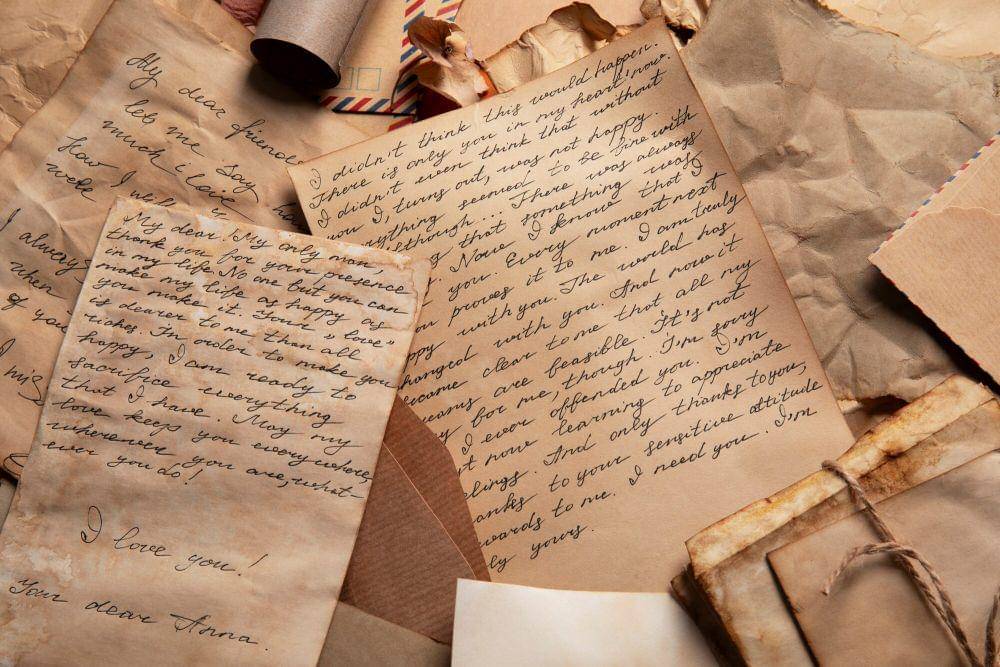 My dear friend
let me say
much i love
How I will
were
I always
when
of you
I mis
My dear! My only man,
thank you for your presence
in my life. No one but you can
make my life as happy as
you make it. Your "love"
is dearer to me than all
riches. In order to make you
happy, I am ready to
sacrifice everything
that I have. May my
love keep you everywhere,
wherever you are, what-
ever you do!
I love you!
Your dear Anna.
I didn't think this would happen.
There is only you in my heart now.
I didn't even think that without
you I, turns out, was not happy.
rything seemed to be fine with
although... There was always
that something was
Now I know that I
you. Every moment next
ou proves it to me. I am truly
ppy with you. The world has
hanged with you. And now it
ecame clear to me that all my
eams are feasible. It's not
y for me, though. I'm sorry
I ever offended you. I'm
t now learning to appreciate
elings. And only thanks to you,
anks to your sensitive attitude
wards to me. I need you. I'm
ly yours.